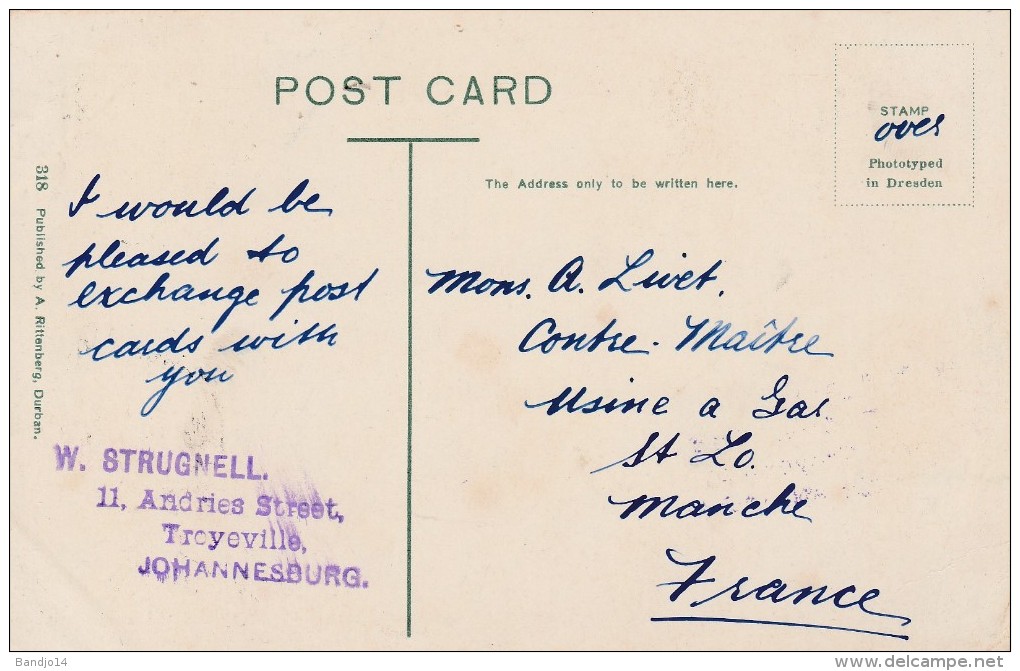 POST CARD
STAMP
over
Phototyped
in Dresden
The Address only to be written here.
318 Published by A. Rittenberg, Durban.
I would be
pleased to
exchange post
cards with
you
W. STRUGNELL.
11, Andries Street,
Troyeville,
JOHANNESBURG.
Mons. A. Livet.
Contre-Maître
Usine a Gas
St Lo.
Manche
France
Bandjo14
www.delcampe.net